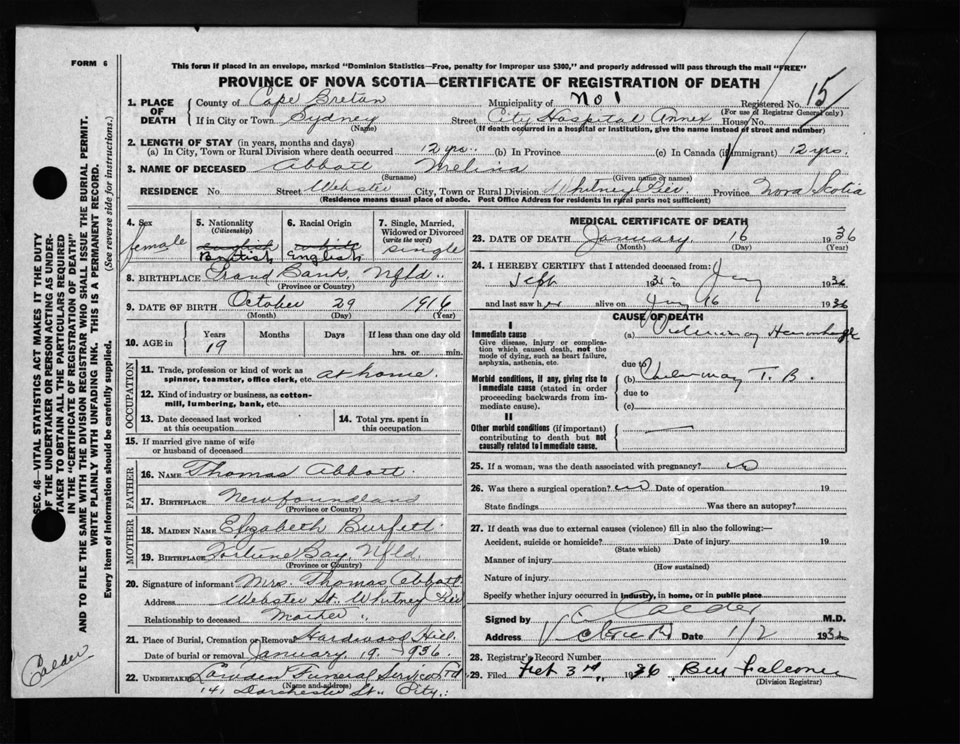 FORM 6
This form if placed in an envelope, marked "Dominion Statistics—Free, penalty for improper use $300," and properly addressed will pass through the mail "FREE"
PROVINCE OF NOVA SCOTIA—CERTIFICATE OF REGISTRATION OF DEATH
1. PLACE OF DEATH County of Cape Breton Municipality of No 1 Registered No. 15
(For use of Registrar General only)
If in City or Town Sydney Street City Hospital Annex House No.
(Name) (If death occurred in a hospital or institution, give the name instead of street and number)
2. LENGTH OF STAY (in years, months and days)
(a) In City, Town or Rural Division where death occurred 12 yrs. (b) In Province (c) In Canada (if immigrant) 12 yrs.
3. NAME OF DECEASED Abbott Melina
(Surname) (Given name or names)
RESIDENCE No Street Webster City, Town or Rural Division Whitney Pier Province Nova Scotia
(Residence means usual place of abode. Post Office Address for residents in rural parts not sufficient)
4. Sex female
5. Nationality (Citizenship) English British
6. Racial Origin white English
7. Single, Married, Widowed or Divorced (write the word) single
8. BIRTHPLACE Grand Bank, Nfld.
(Province or Country)
9. DATE OF BIRTH October 29 1916
(Month) (Day) (Year)
10. AGE in Years 19 Months Days If less than one day old hrs. or min.
OCCUPATION
11. Trade, profession or kind of work as spinner, teamster, office clerk, etc. at home.
12. Kind of industry or business, as cotton-mill, lumbering, bank, etc.
13. Date deceased last worked at this occupation
14. Total yrs. spent in this occupation
15. If married give name of wife or husband of deceased
FATHER
16. NAME Thomas Abbott
17. BIRTHPLACE Newfoundland
(Province or Country)
MOTHER
18. MAIDEN NAME Elizabeth Burfett
19. BIRTHPLACE Fortune Bay, Nfld
(Province or Country)
20. Signature of informant Mrs. Thomas Abbott
Address Webster St. Whitney Pier
Relationship to deceased Mother
21. Place of Burial, Cremation or Removal Hardwood Hill
Date of burial or removal January 19. 1936.
22. UNDERTAKER Funeral Service Ltd
(Name and address)
141 Dorchester St. City.
MEDICAL CERTIFICATE OF DEATH
23. DATE OF DEATH January 16 1936
(Month) (Day) (Year)
24. I HEREBY CERTIFY that I attended deceased from:
Sept 193 to Jany 1936
and last saw her alive on Jany 16 1936
CAUSE OF DEATH
I
Immediate cause
Give disease, injury or complication which caused death, not the mode of dying, such as heart failure, asphyxia, asthenia, etc.
(a) Pulmonary Hemorrhage
due to
Morbid conditions, if any, giving rise to immediate cause (stated in order proceeding backwards from immediate cause).
(b) Pulmonary T.B.
due to
(c)
II
Other morbid conditions (if important) contributing to death but not causally related to immediate cause.
25. If a woman, was the death associated with pregnancy? no
26. Was there a surgical operation? no Date of operation 19
State findings Was there an autopsy?
27. If death was due to external causes (violence) fill in also the following:—
Accident, suicide or homicide? Date of injury 19
(State which)
Manner of injury
(How sustained)
Nature of injury
Specify whether injury occurred in industry, in home, or in public place
Signed by Calder M.D.
Address Date 1/2 193
28. Registrar's Record Number
29. Filed Feb 3rd, 1936
(Division Registrar)
SEC. 46—VITAL STATISTICS ACT MAKES IT THE DUTY
OF THE UNDERTAKER OR PERSON ACTING AS UNDER-
TAKER TO OBTAIN ALL THE PARTICULARS REQUIRED
IN THE "CERTIFICATE OF REGISTRATION OF DEATH"
AND TO FILE THE SAME WITH THE DIVISION REGISTRAR WHO SHALL ISSUE THE BURIAL PERMIT.
WRITE PLAINLY WITH UNFADING INK. THIS IS A PERMANENT RECORD.
Every item of information should be carefully supplied. (See reverse side for instructions.)
Calder